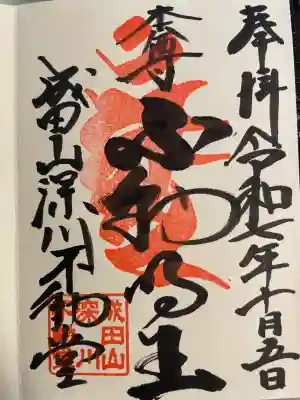 奉拝 令和七年十月五日
本尊
不動明王
成田山深川不動堂
成田山
深川
不動堂